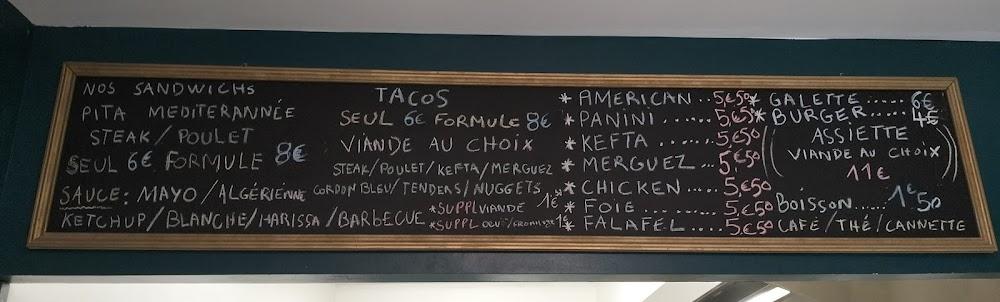 NOS SANDWICHS
PITA MEDITERANNÉE
STEAK/POULET
SEUL 6€ FORMULE 8€
SAUCE: MAYO/ALGÉRIENNE
KETCHUP/BLANCHE/HARISSA/BARBECUE
TACOS
SEUL 6€ FORMULE 8€
VIANDE AU CHOIX
STEAK/POULET/KEFTA/MERGUEZ
CORDON BLEU/TENDERS/NUGGETS
*SUPPL VIANDE 1€
*SUPPL OEUF/FROMAGE 1€
* AMERICAN .. 5€50
* PANINI .... 5€50
* KEFTA ...... 5€50
* MERGUEZ ... 5€50
* CHICKEN .... 5€50
* FOIE ........ 5€50
* FALAFEL .... 5€50
* GALETTE ...... 6€
* BURGER ...... 4€
ASSIETTE
VIANDE AU CHOIX
11€
BOISSON ...... 1€50
CAFÉ/THÉ/CANNETTE